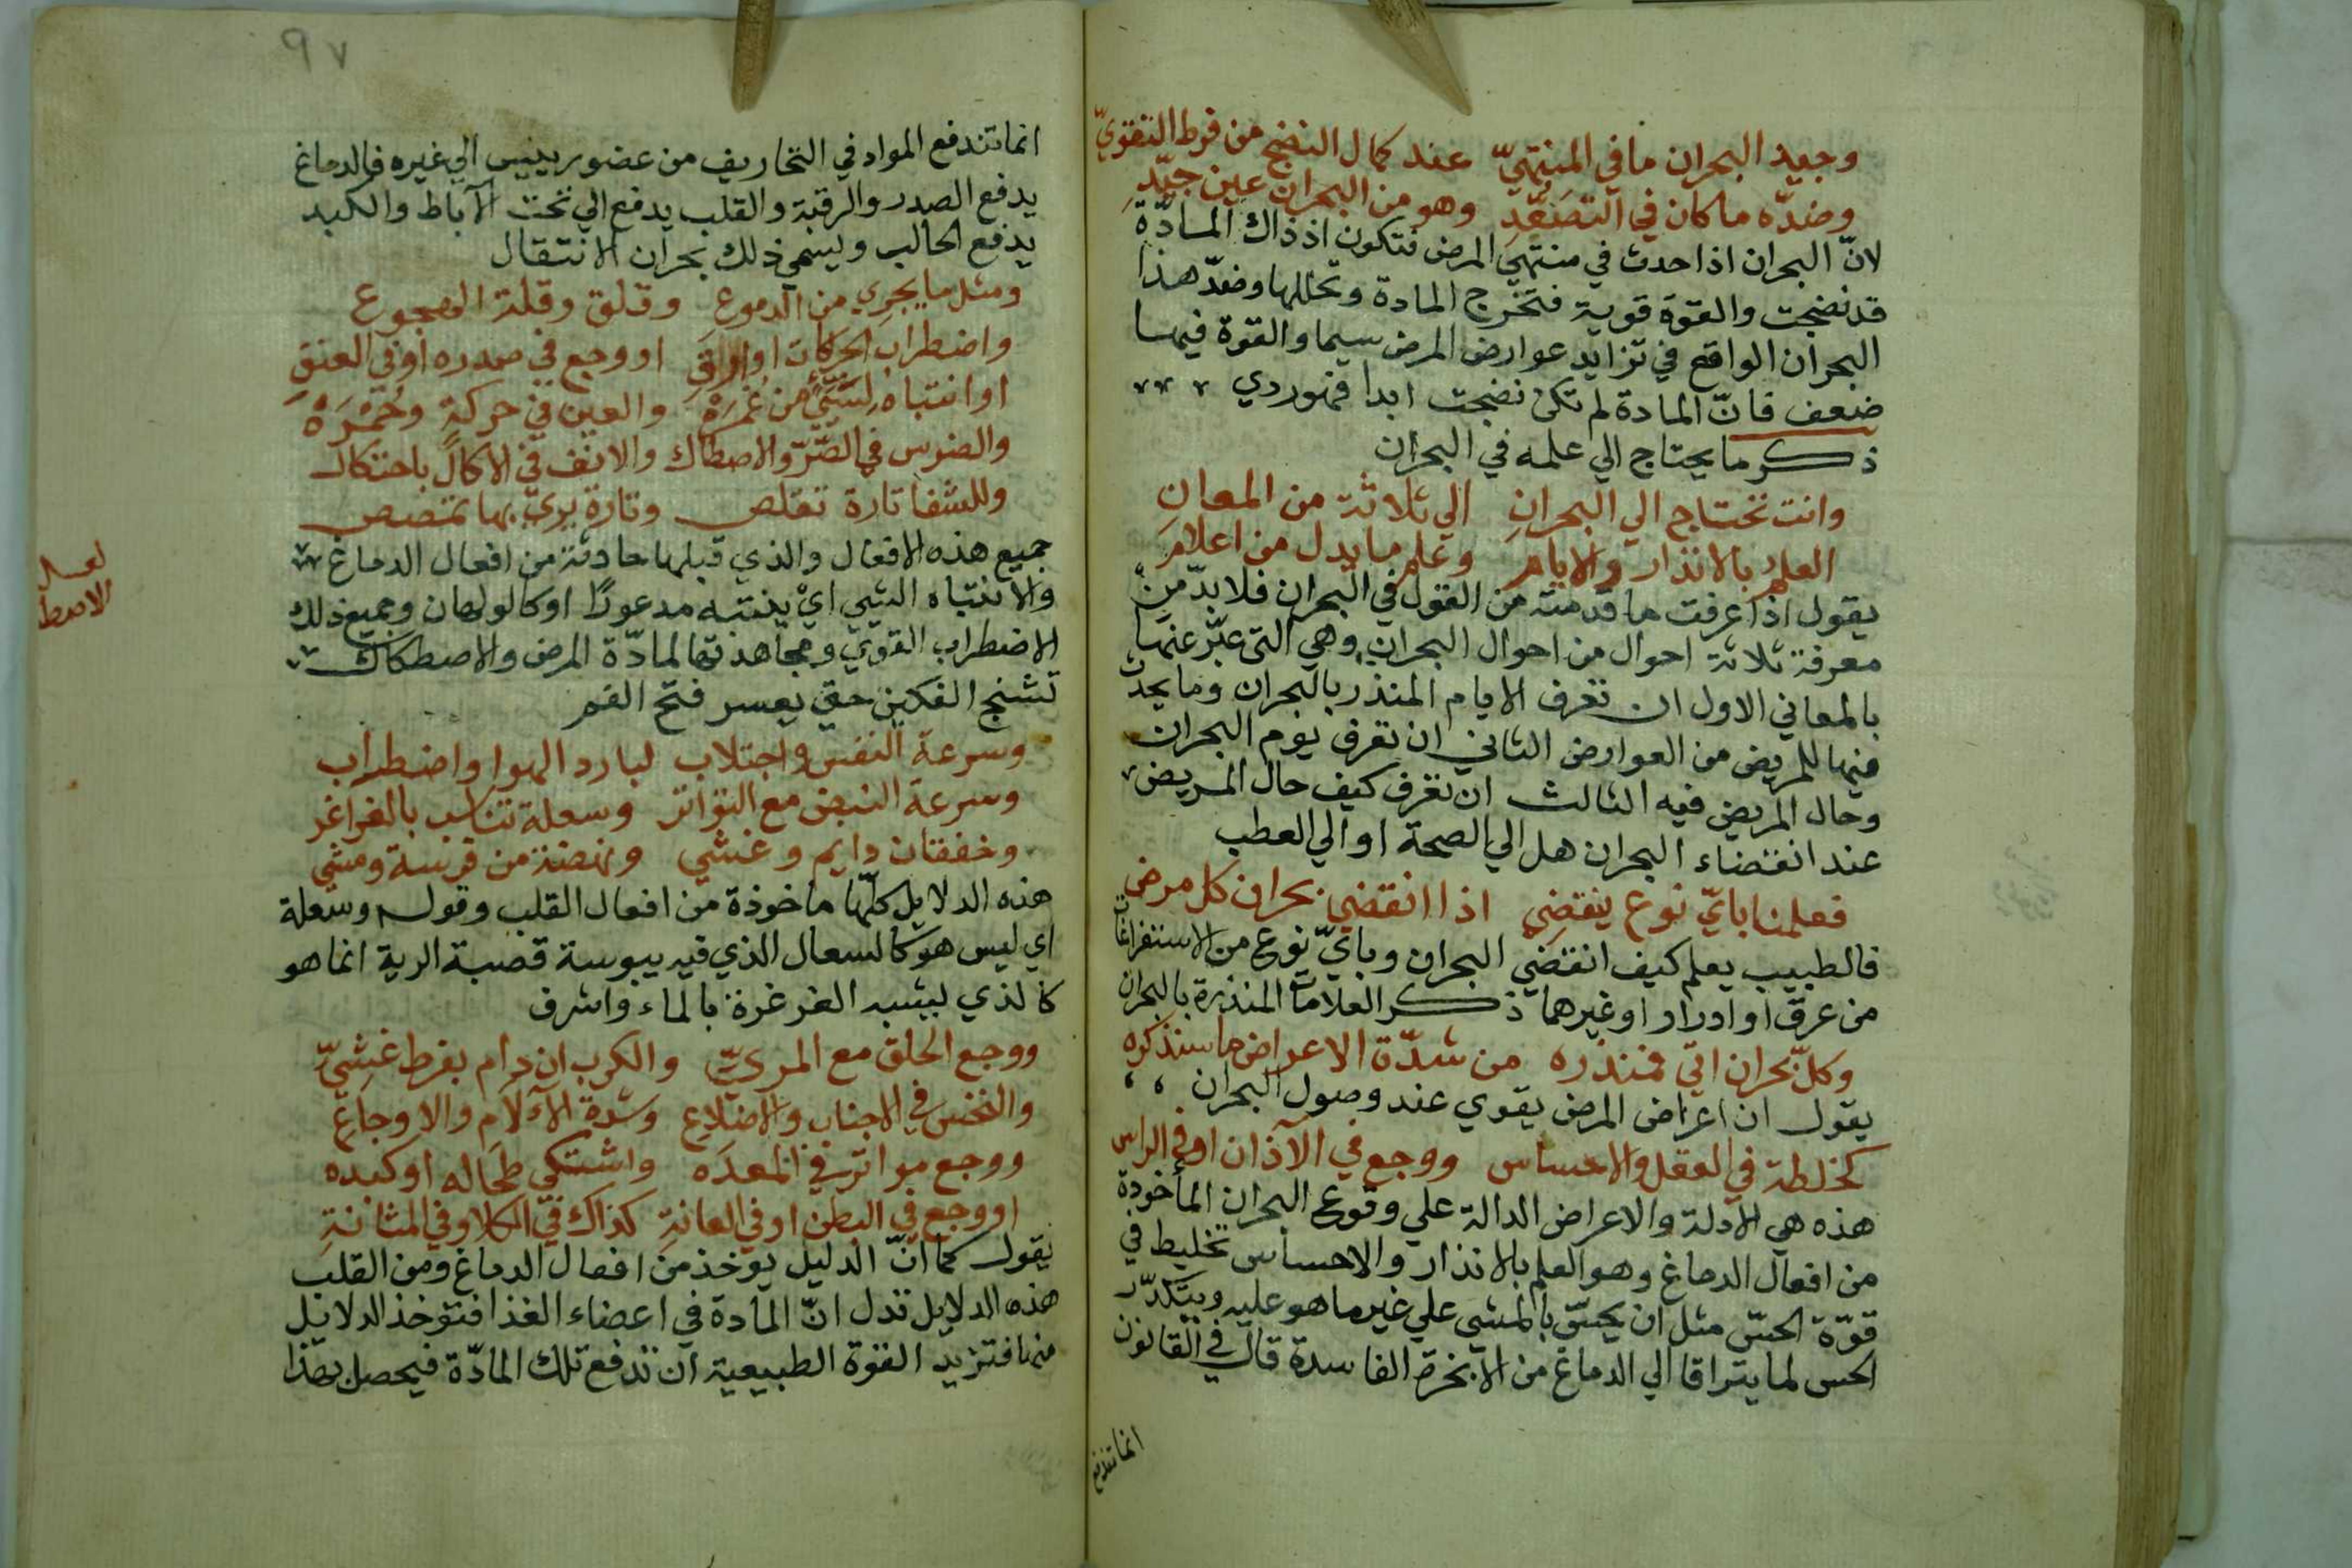 وجيد البحران ما في المنتهي عند كمال النضج من فرط التقوي
وضده ما كان في التصعد وهو من البحران عين جيد
لان البحران اذا حدث في منتهي المرض فتكون اذ ذاك المادة
قد نضجت والقوة قوية فتخرج المادة وتحللها وضد هذا
البحران الواقع في تزايد عوارض المرض سيما والقوة فيها
ضعف فان المادة لم تكن نضجت ابدا فهو ردي
ذكر ما يحتاج الي علمه في البحران
وانت تحتاج الي البحران الي ثلاثة من المعان
العلم بالانذار والايام وعلم ما يدل من اعلام
يقول اذا عرفت ما قدمته من القول في البحران فلا بد من
معرفة ثلاثة احوال من احوال البحران وهي التي عبر عنها
بالمعاني الاول ان تعرف الايام المنذر بالبحران وما يحدث
فيها للمريض من العوارض الثاني ان تعرف يوم البحران
وحال المريض فيه الثالث ان تعرف كيف حال المريض
عند انقضاء البحران هل الي الصحة او الي العطب
فعلمنا باي نوع ينقضي اذا انقضي بحران كل مرض
فالطبيب يعلم كيف انقضي البحران وباي نوع من الاستفراغات
من عرق او ادرار او غيرهما ذكر العلامات المنذرة بالبحران
وكل بحران اتي فمنذره من شدة الاعراض ما سنذكره
يقول ان اعراض المرض يقوي عند وصول البحران
كخلطة في العقل والاحساس ووجع في الآذان او في الراس
هذه هي الادلة والاعراض الدالة علي وقوع البحران المأخوذة
من افعال الدماغ وهو العلم بالانذار والاحساس تخليط في
قوة الحس مثل ان يحس بالمشي علي غير ما هو عليه ويتكدر
الحس لما يتراقا الي الدماغ من الابخرة الفاسدة قال في القانون
انما تندفع
٩٧
انما تندفع المواد في التخاريف من عضو رييس الي غيره فالدماغ
يدفع الصدر والرقبة والقلب يدفع الي تحت الآباط والكبد
يدفع الحالب ويسمي ذلك بحران الانتقال
ومثل ما يجري من الدموع وقلق وقلة الهجوع
واضطراب الحركات او وجع في صدره او في العنق
او انتباه سيئ من غمره والعين في حركة وحمره
والضرس في الصر والاصطاك والانف في الاكال باحتكاك
وللشفا تارة تقلص وتارة يري بها تمصص
جميع هذه الافعال والذي قبلها حادثة من افعال الدماغ
والانتباه السيي اي ينتبه مدعورا او كالولهان وجميع ذلك
الاضطراب القوي ومجاهدتها لمادة المرض والاصطكاك
تشنج الفكين حتي يعسر فتح الفم
لعله
الاصط
وسرعة النفس واجتلاب لبارد الهوا واضطراب
وسرعة النبض مع التواتر وسعلة تناسب بالغراغر
وخفقان دايم وغشي ونهضة من فرسة ومشي
هذه الدلايل كلها ماخوذة من افعال القلب وقوله وسعلة
اي ليس هو كالسعال الذي فيه يبوسة قصبة الرية انما هو
كالذي يشبه الغرغرة بالماء واشرف
ووجع الحلق مع المري والكرب ان دام بفرط غشي
والنخس في الاجناب والاضلاع وشدة الآلام والاوجاع
ووجع مواتر في المعده واشتكي طحاله او كبده
او وجع في البطن او في العانة كذاك في الكلا وفي المثانة
يقول كما ان الدليل يوخذ من افعال الدماغ ومن القلب
هذه الدلايل تدل ان المادة في اعضاء الغذا فتوخذ الدلايل
منها فتزيد القوة الطبيعية ان تدفع تلك المادة فيحصل بهذا